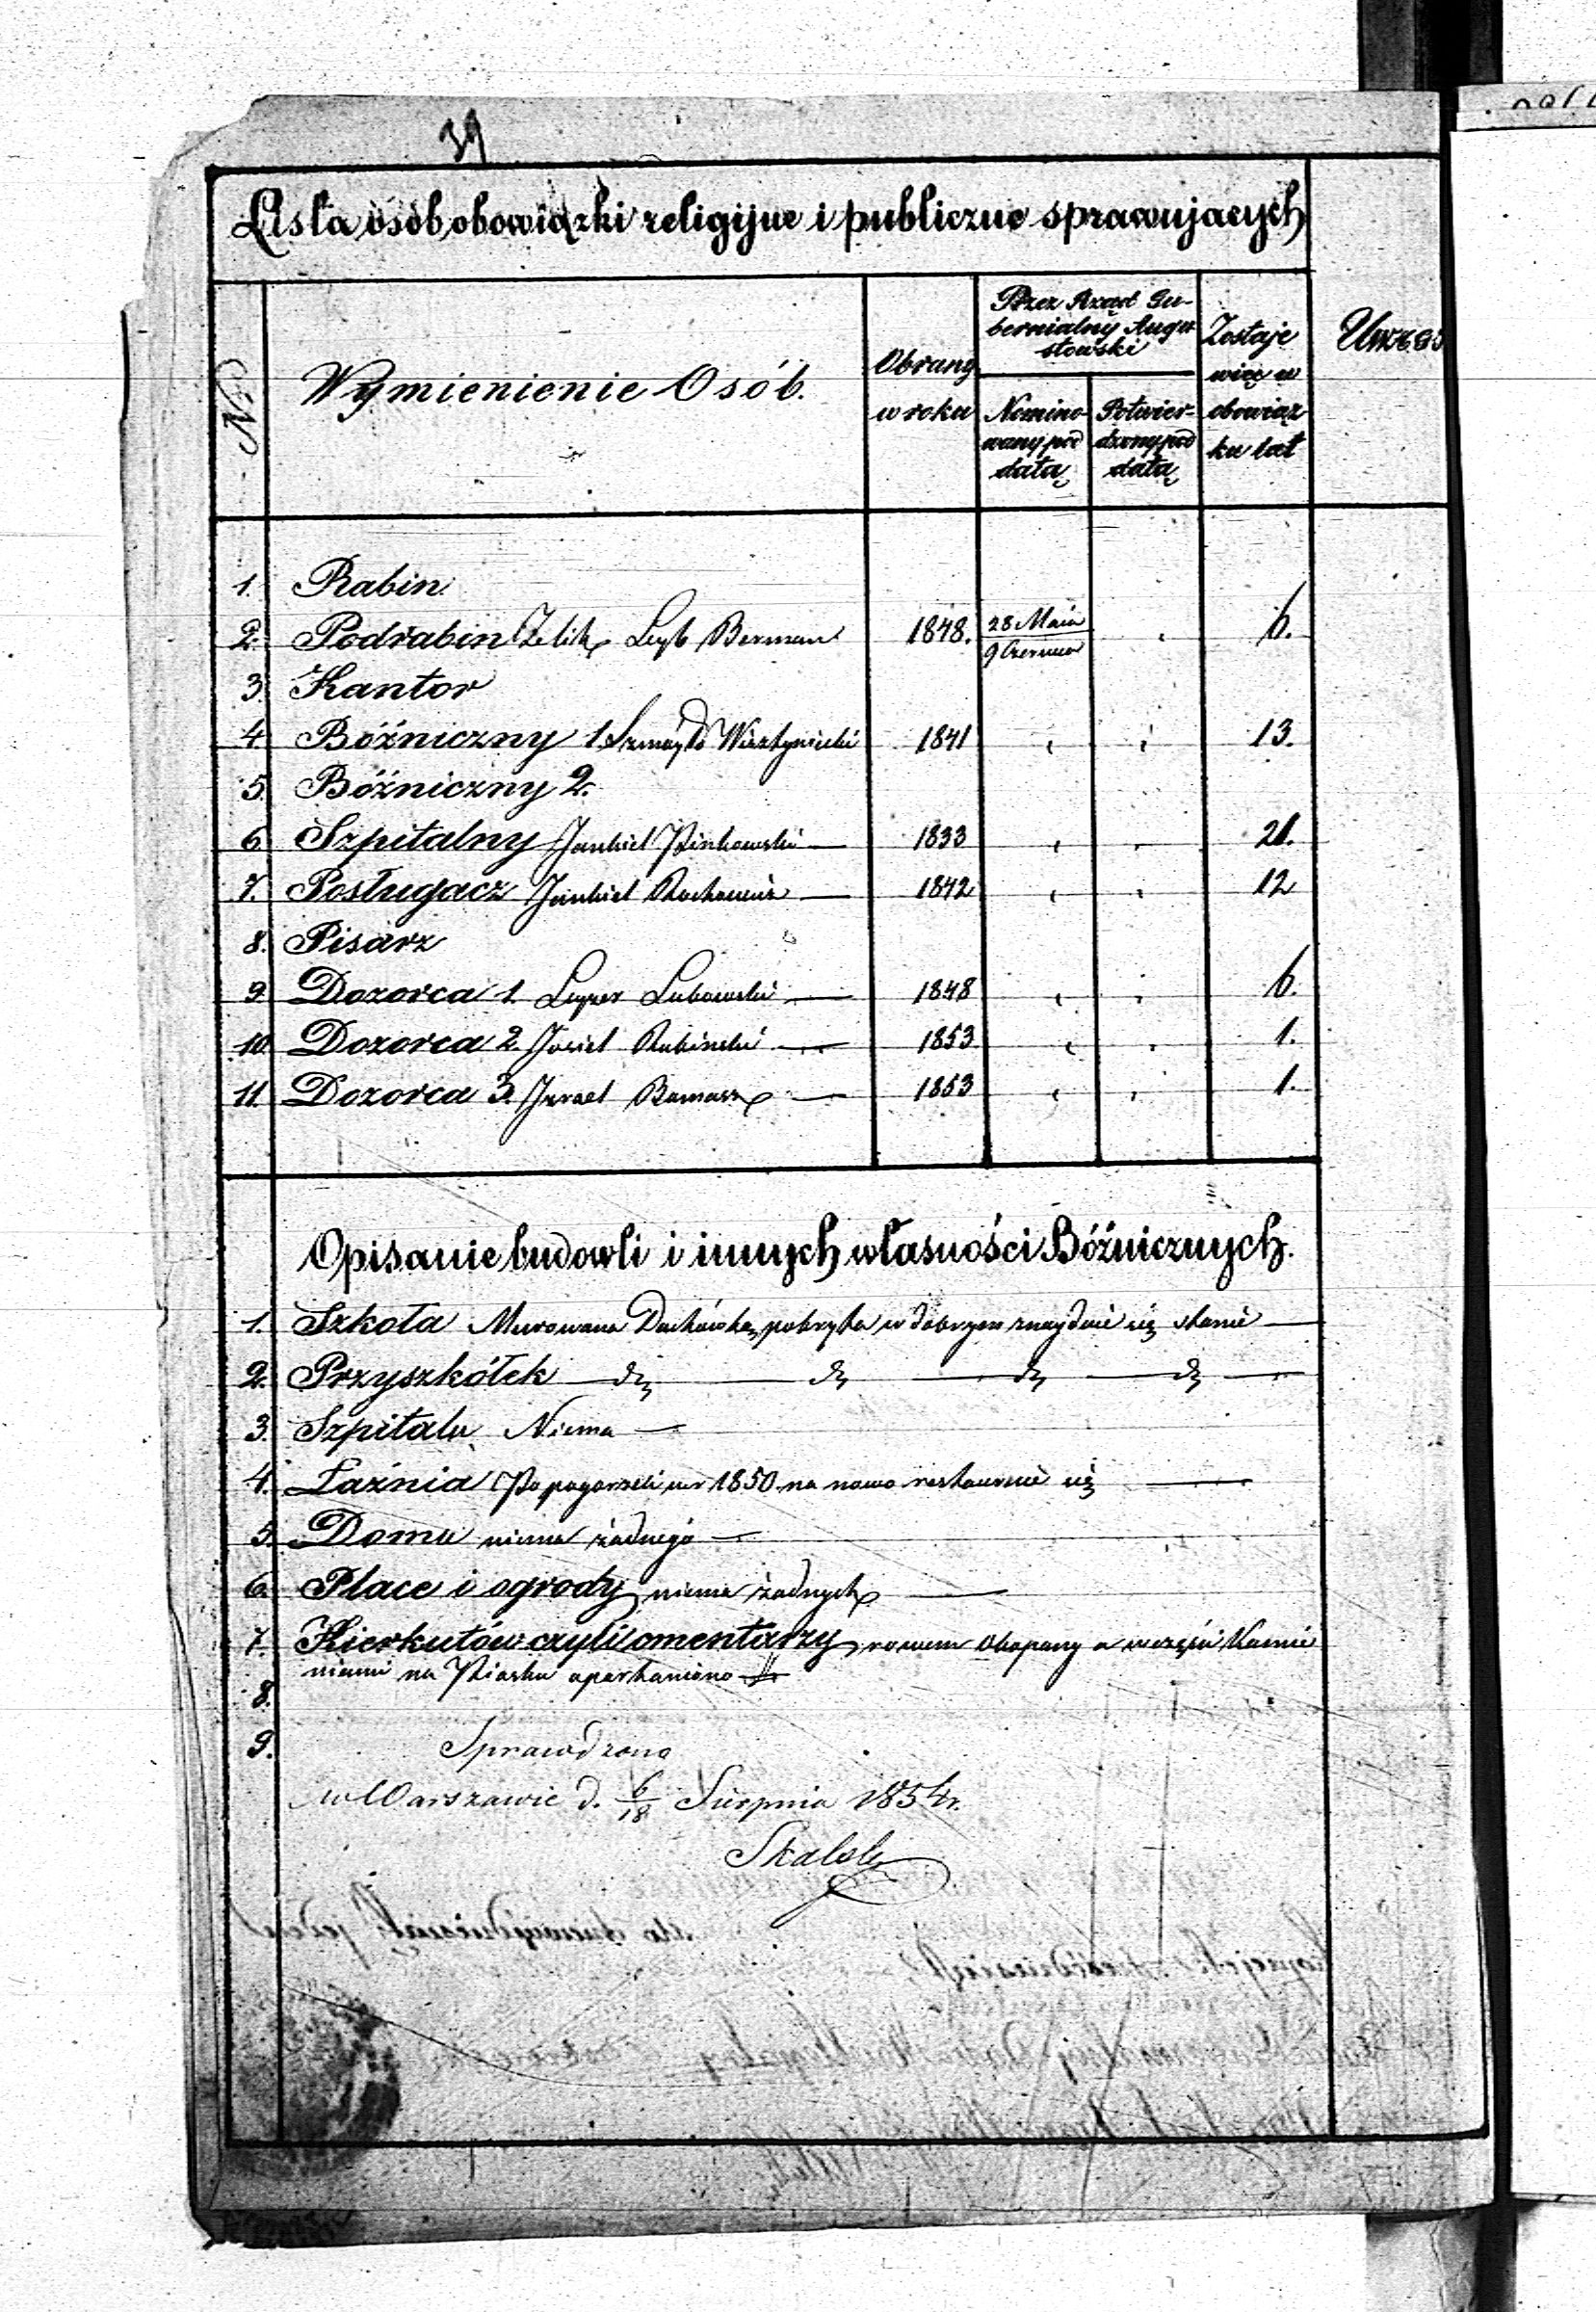 39
Lista osób, obowiązki religijne i publiczne sprawujących
No Wymienienie Osób. Obrany w roku Przez Rząd Gubernialny Augustowski Nominowany pod datą Potwierdzony pod datą Zostaje więc w obowiązku lat
1. Rabin
2. Podrabin Zelik Leyb Berman 1848. 28 Maia / 9 Czerwca 6.
3. Kantor
4. Bóżniczny 1. Szmuyło Wisztyniecki 1841 13.
5. Bóżniczny 2.
6. Szpitalny Jankiel Pinkowski 1833 21.
7. Posługacz Jankiel 1842 12
8. Pisarz
9. Dozorca 1. Leyzer Lubowski 1848 6.
10. Dozorca 2. Josiel Rubinski 1853 1.
11. Dozorca 3. Izrael 1853 1.
Opisanie budowli i innych własności Bóżnicznych.
1. Szkoła Murowana Dachówką pokryta w dobrym znayduie się stanie
2. Przyszkółek
3. Szpitalu Niema
4. Łaźnia Po pogorzeli w r 1850 na nowo restauruie się
5. Domu niema żadnego
6. Place i ogrody niema żadnych
7. Kierkutów czyli cmentarzy, rowem okopany a w części Kamie
niami na Piasku oparkaniono
8.
9. Sprawdzono
w Warszawie d. 6/18 Sierpnia 1854 r.
Skalski